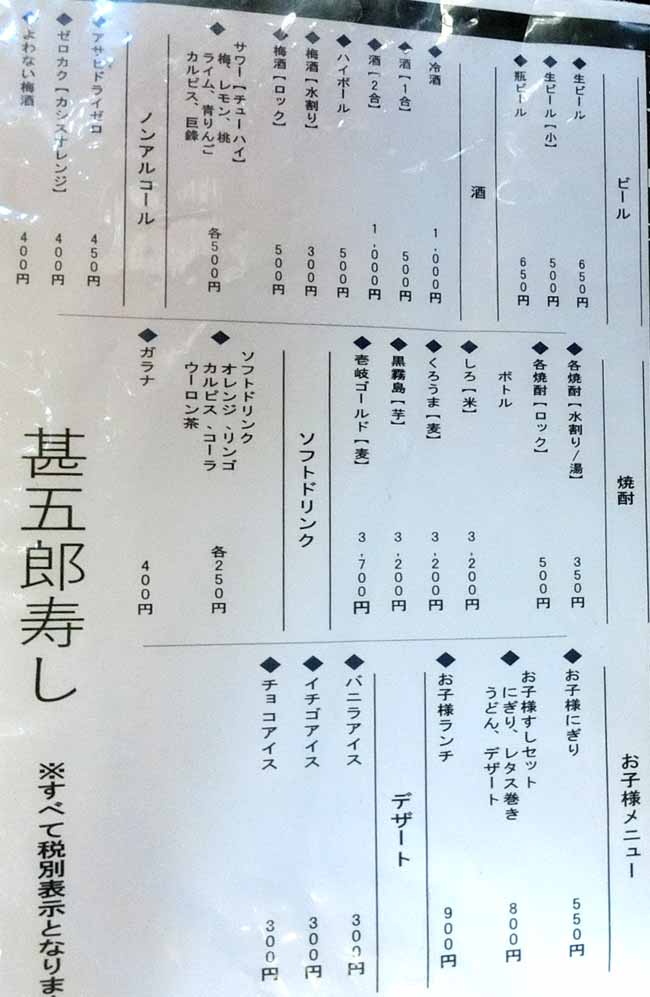 ビール
◆生ビール 650円
◆生ビール【小】 500円
◆瓶ビール 650円
酒
◆冷酒 1,000円
◆酒【1合】 500円
◆酒【2合】 1,000円
◆ハイボール 500円
◆梅酒【水割り】 300円
◆梅酒【ロック】 500円
◆サワー【チューハイ】
梅、レモン、桃
ライム、青りんご
カルピス、巨鋒 各500円
ノンアルコール
◆アサヒドライゼロ 450円
◆ゼロカク【カシスオレンジ】 400円
◆よわない梅酒 400円
焼酎
◆各焼酎【水割り/湯】 350円
◆各焼酎【ロック】 500円
ボトル
◆しろ【米】 3,200円
◆くろうま【麦】 3,200円
◆黒霧島【芋】 3,200円
◆壱岐ゴールド【麦】 3,700円
ソフトドリンク
◆ソフトドリンク
オレンジ、リンゴ
カルピス、コーラ
ウーロン茶 各250円
◆ガラナ 400円
お子様メニュー
◆お子様にぎり 550円
◆お子様すしセット
にぎり、レタス巻き
うどん、デザート 800円
◆お子様ランチ 900円
デザート
◆バニラアイス 300円
◆イチゴアイス 300円
◆チョコアイス 300円
甚五郎寿し
※すべて税別表示となりま